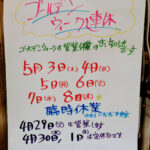 ゴールデン
ウーク連休
ゴールデンウィークの営業のお知らせ
5月3日(土)4日(日)
5日(月)6日(火)
7日(水)8日(木)
臨時休業
4月29日(火)は営業します
4月30日、1日は定休日です。